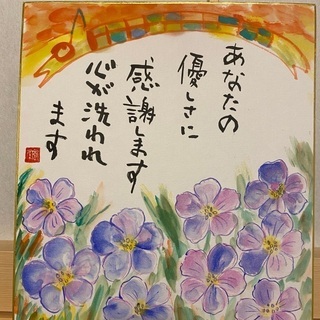 あなたの
優しさに
感謝します
心が洗われ
ます